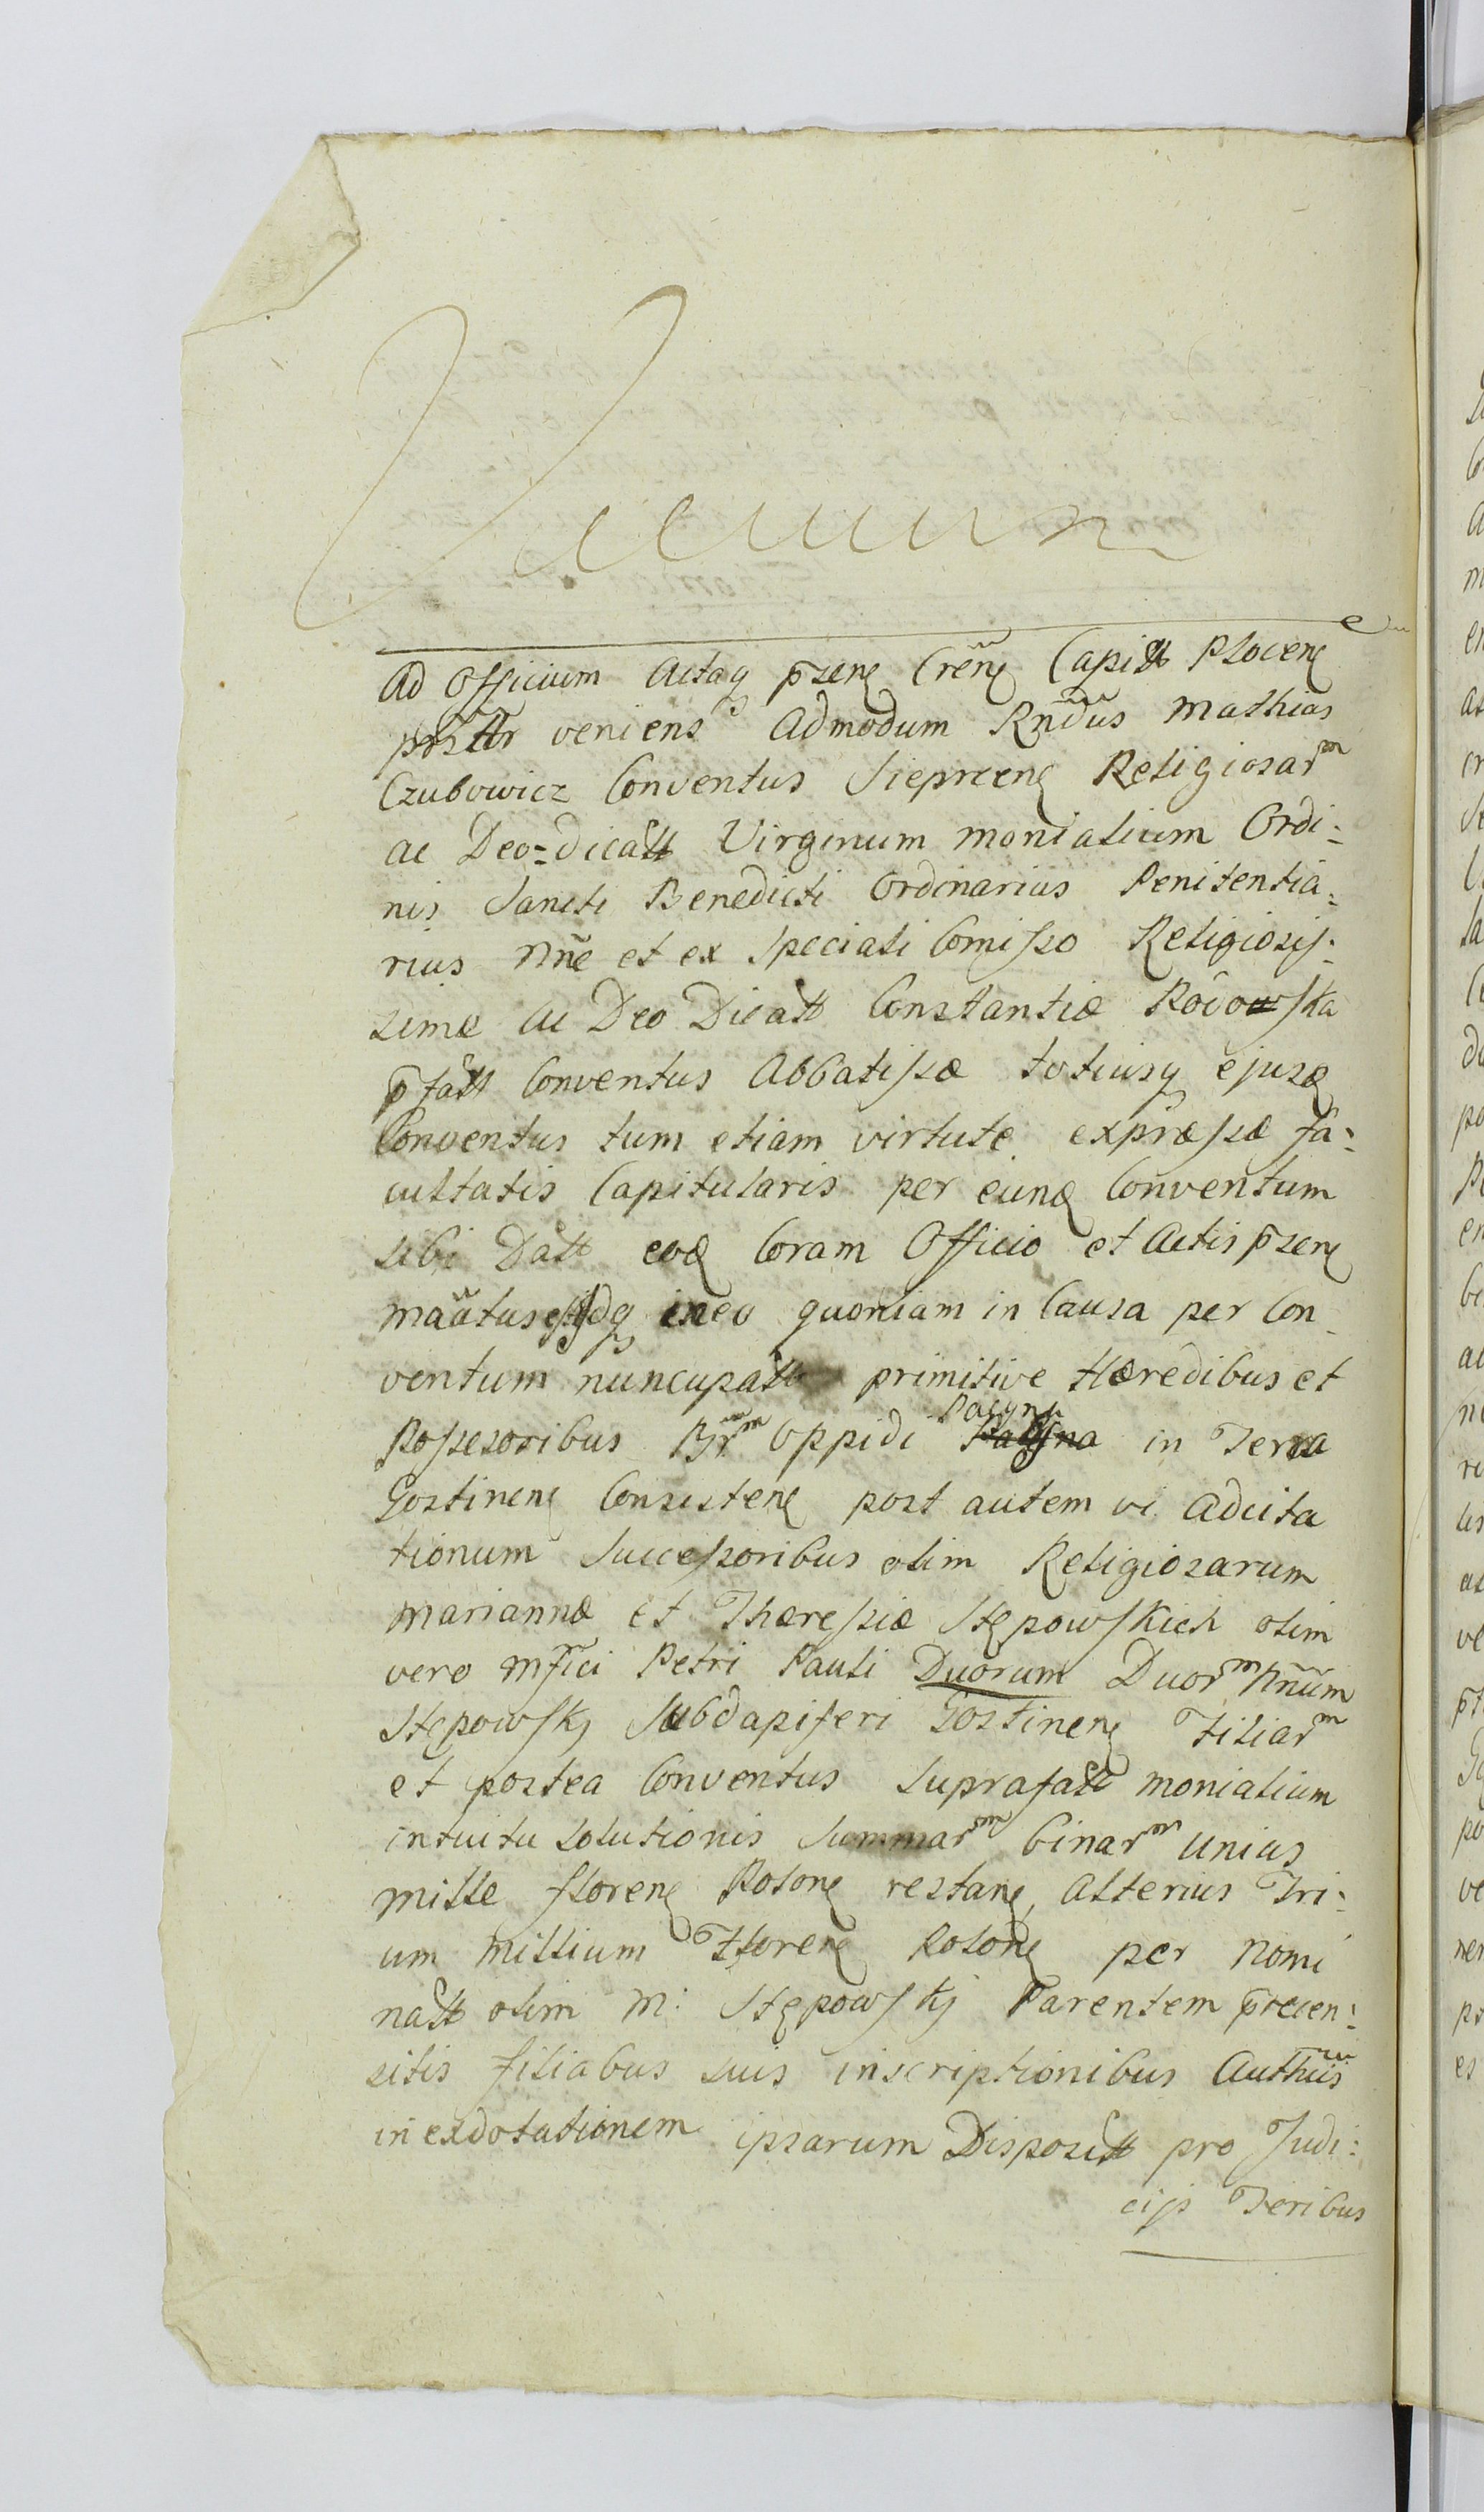 Ad Officium Actaq̃ p̃senę Crẽnę Capitt Plocenę
psltr veniens Admodum Rñdus Mathias
Czubowicz Conventus Sieprcenę Religiosarᵐ
ac Deo=dicatt Virginum monialium Ordi:
nis Sancti Benedicti Ordinarius Penitentia:
rius Nñe et ex speciali Comisso Religiosis:
simæ ac Deo Dicatt Constantiæ Rodowska
p̃fatt Conventus Abbatissæ totiusq̃ ejusdę
Conventus tum etiam virtute expræssæ fa:
cultatis Capitularis per eundę Conventum
sibi Datt eodę Coram Officio et Actis p̃senę
ineo quoniam in Causa per Con
ventum nuncupatt primitive Hæredibus et
Possesoribus Br̃ᵐ Oppidi Pacyna Pacyna in Terra
Gostinenę Consistenę post autem vi adcita
tionum Successoribus olim Religiosarum
Mariannæ et Thæressiæ Stępowskich olim
vero Mfici Petri Pauli Duorum Duorᵐ Nñum
Stępowskj Subdapiferi Gostinenę Filiarᵐ
et postea Conventus suprafatt monialium
intuitu solutionis Summarᵐ binarᵐ unius
mille florenę Polonę restanę, alterius Tri:
um millium Florenę Polonę per Nomi
natt olim M: Stępowskj Parentem p̃recen:
sitis filiabus suis inscriptionibus Authũis
in exdotationem ipsarum Disposist pro Judi:
cijs Teribus